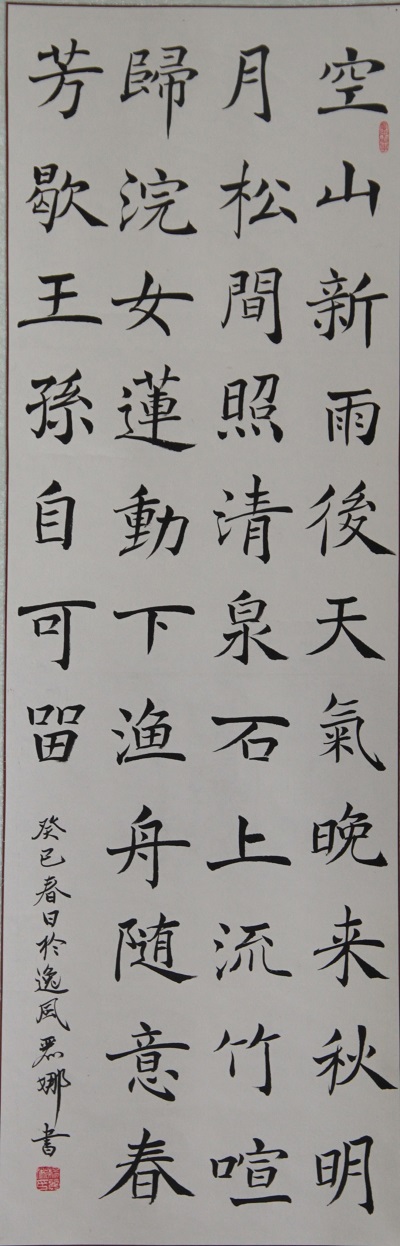 空山新雨後天氣晚来秋明
月松間照清泉石上流竹喧
歸浣女蓮動下渔舟随意春
芳歇王孫自可留
癸巳春日於逸风娜書